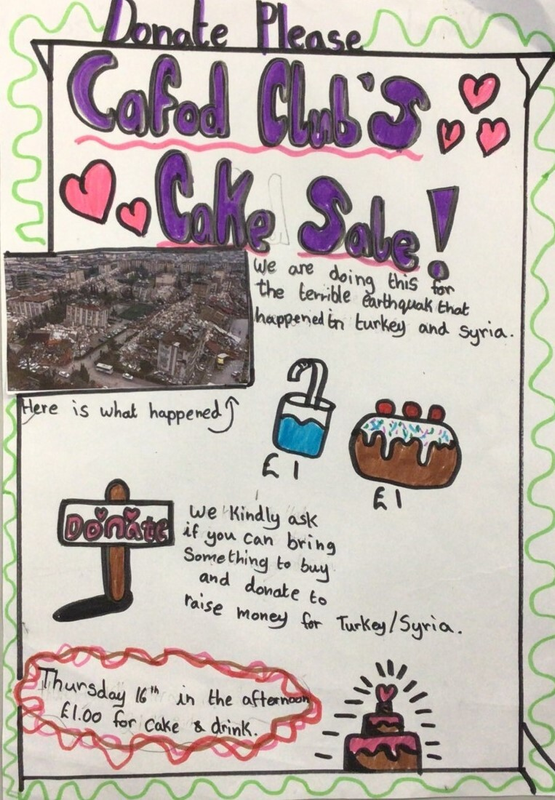 Donate Please
Cafod Club's
Cake Sale!
We are doing this for
the terrible earthquak that
happened in turkey and syria.
Here is what happened
£1
£1
Donate
We Kindly ask
if you can bring
Something to buy
and donate to
raise money for Turkey/Syria.
Thursday 16th in the afternoon
£1.00 for cake & drink.